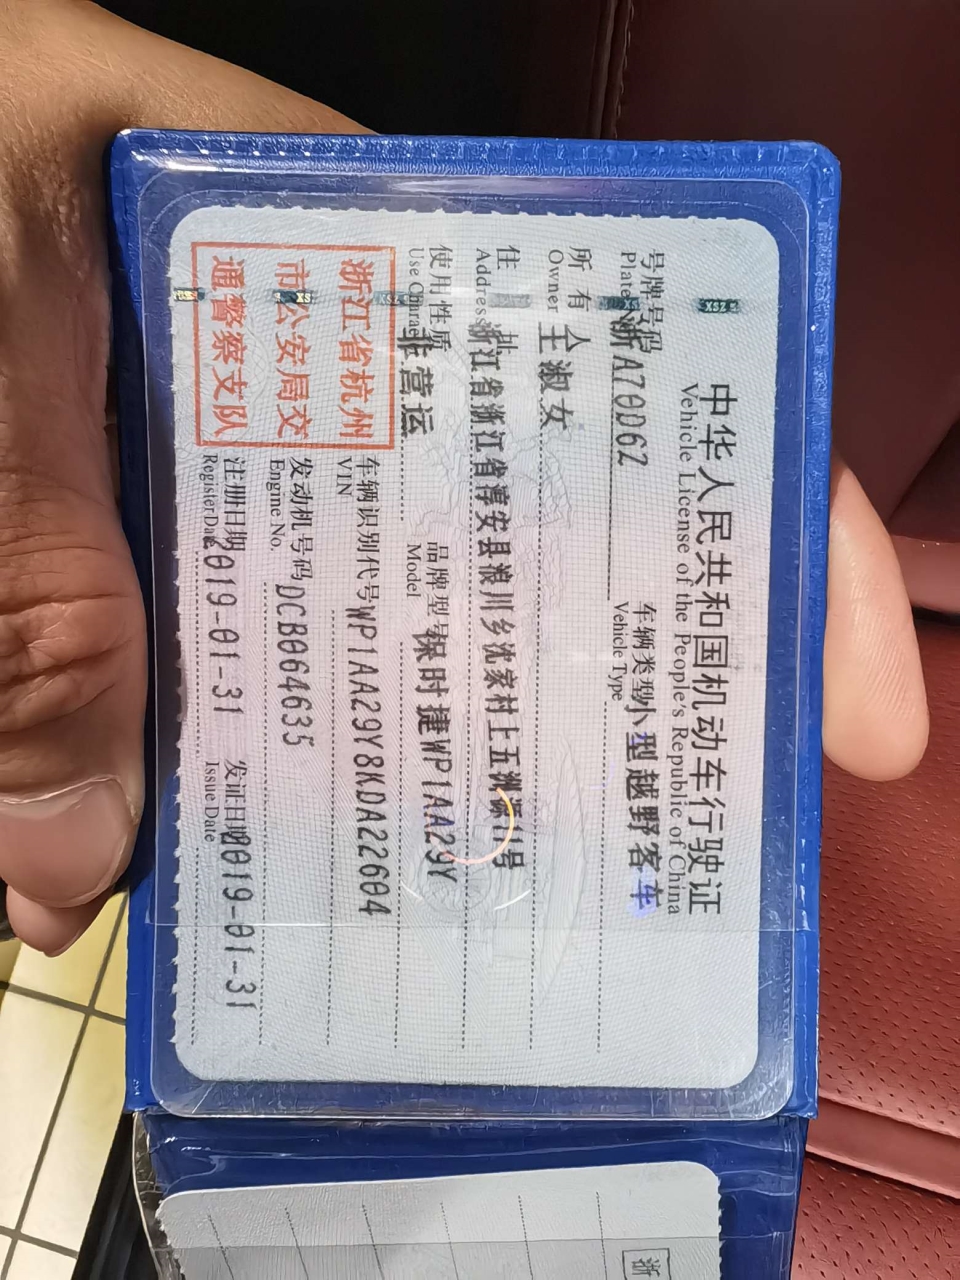 中华人民共和国机动车行驶证
Vehicle License of the People's Republic of China
号牌号码 浙A70D6Z 车辆类型 小型越野客车
Plate No. Vehicle Type
所有人 王淑女
Owner
住址 浙江省浙江省淳安县浪川乡沈家村上五洲源11号
Address
使用性质 非营运 品牌型号 保时捷WP1AA29Y
Use Charac Model
浙江省杭州
市公安局交
通警察支队
车辆识别代号 WP1AA29Y8KDA22604
VIN
发动机号码 DCB064635
Engine No.
注册日期 2019-01-31 发证日期 2019-01-31
Register Date Issue Date
浙